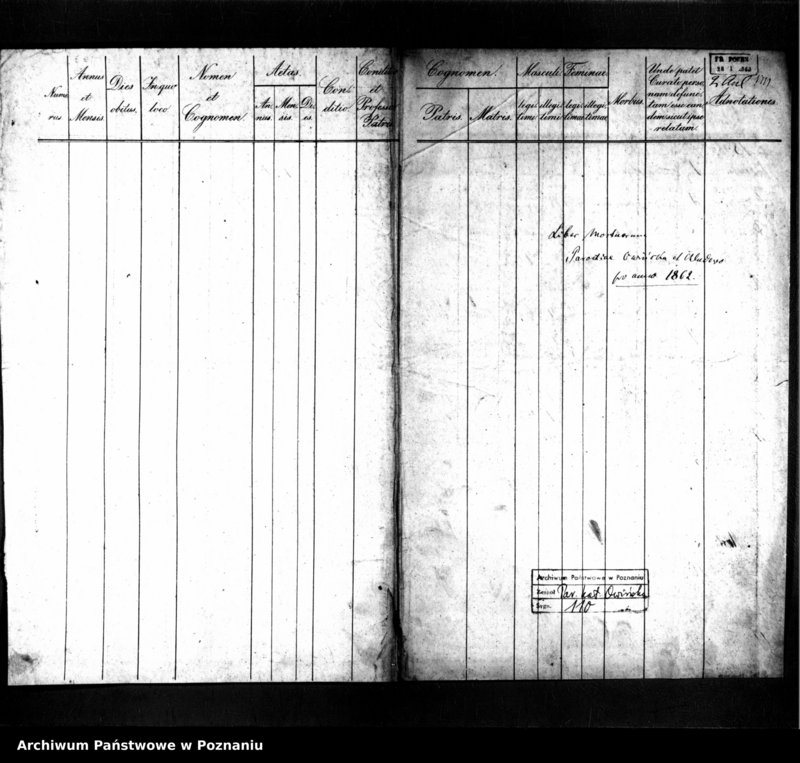 Nume
rus
Annus
et
Mensis.
Dies
obitus.
In quo
loco
Nomen
et
Cognomen.
Aetas.
An
nus.
Men
sis.
Di
es.
Con
ditio.
Conditio
et
Professio
Patris
Cognomen.
Patris.
Matris.
Masculi
legi
timi
illegi
timi
Feminae.
legi
timae
illegi
timae
Morbus.
Unde patet
Curato perso
nam defunc
tam esse ean
dem sicut ipso
relatum.
Adnotationes.
Liber Mortuorum
Parochiae Owińska et
pro anno 1862.
Archiwum Państwowe w Poznaniu
Zespół Par. kat. Owińska
Sygn. 110
Archiwum Państwowe w Poznaniu